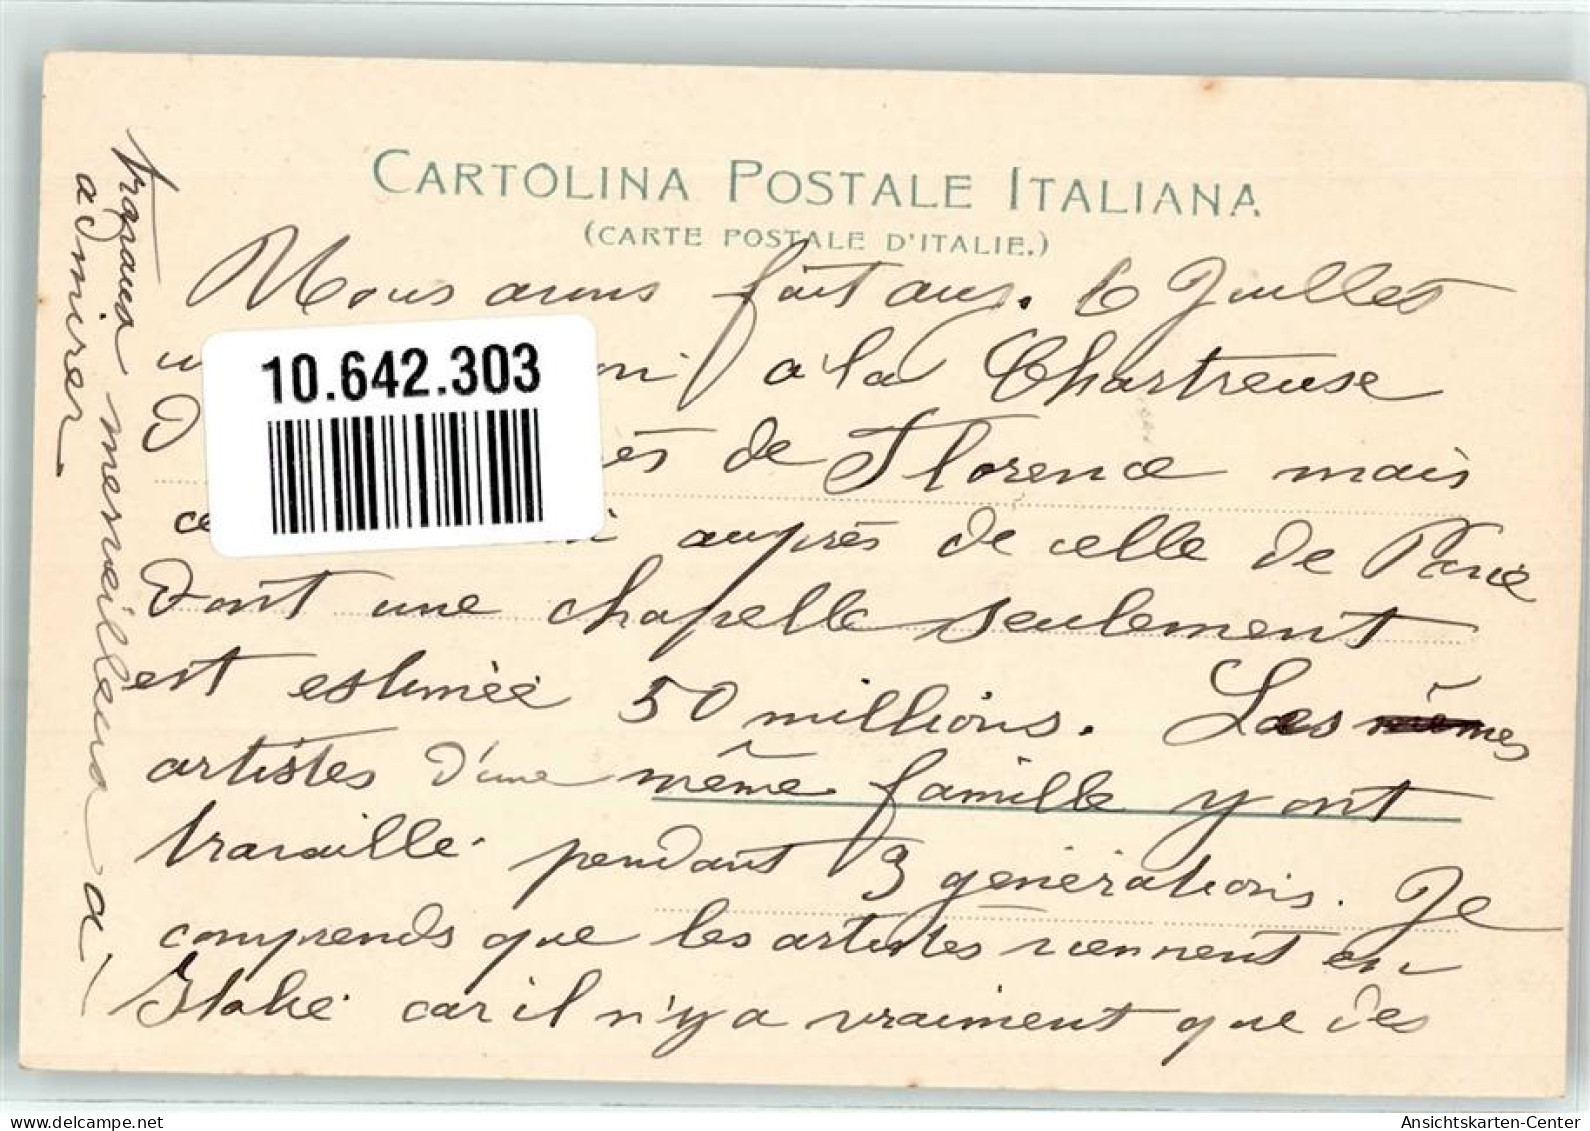 CARTOLINA POSTALE ITALIANA
(CARTE POSTALE D'ITALIE.)
Nous avons fait auj. 6 Juillet
à la Chartreuse
10.642.303
de Florence mais
auprès de celle de Pavie
dont une chapelle seulement
est estimée 50 millions. Les mêmes
artistes d'une même famille y ont
travaillé pendant 3 générations. Je
comprends que les artistes viennent en
Italie car il n'y a vraiment que des
travaux merveilleux à
admirer
Ansichtskarten-Center